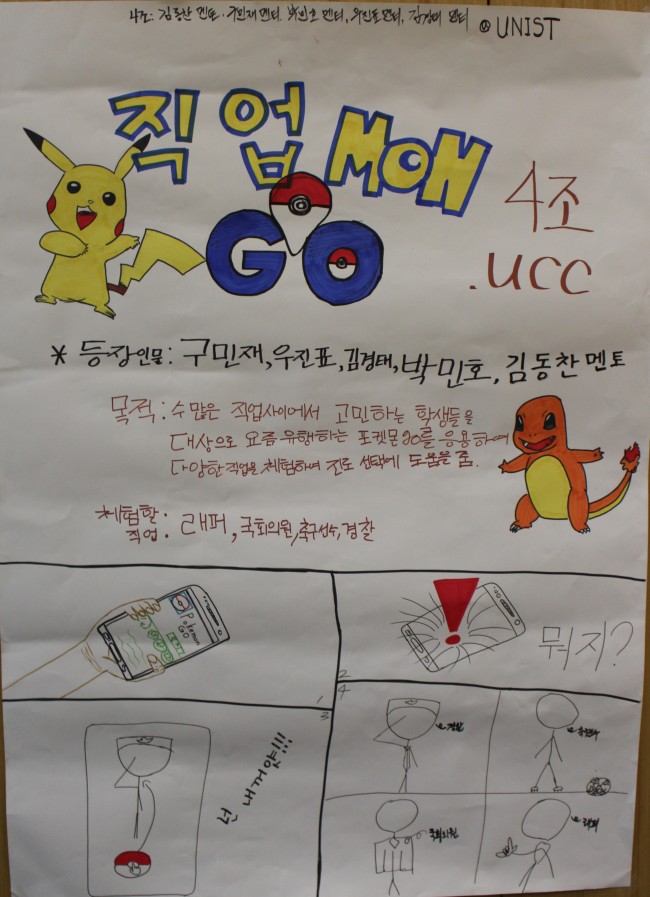 4조: 김동찬 멘토. 구민재 멘티. 박민호 멘티, 우진표 멘티, 김경태 멘티 @ UNIST
직업MON
GO
4조
.UCC
* 등장인물: 구민재, 우진표, 김경태, 박민호, 김동찬 멘토
목적: 수 많은 직업사이에서 고민하는 학생들을
대상으로 요즘 유행하는 포켓몬GO를 응용하여
다양한 직업을 체험하여 진로 선택에 도움을 줌.
체험할
직업: 래퍼, 국회의원, 축구선수, 경찰
Pokemon
GO
1
뭐지?
2
3
넌 내거야!!!
4
경찰
국회의원
래퍼